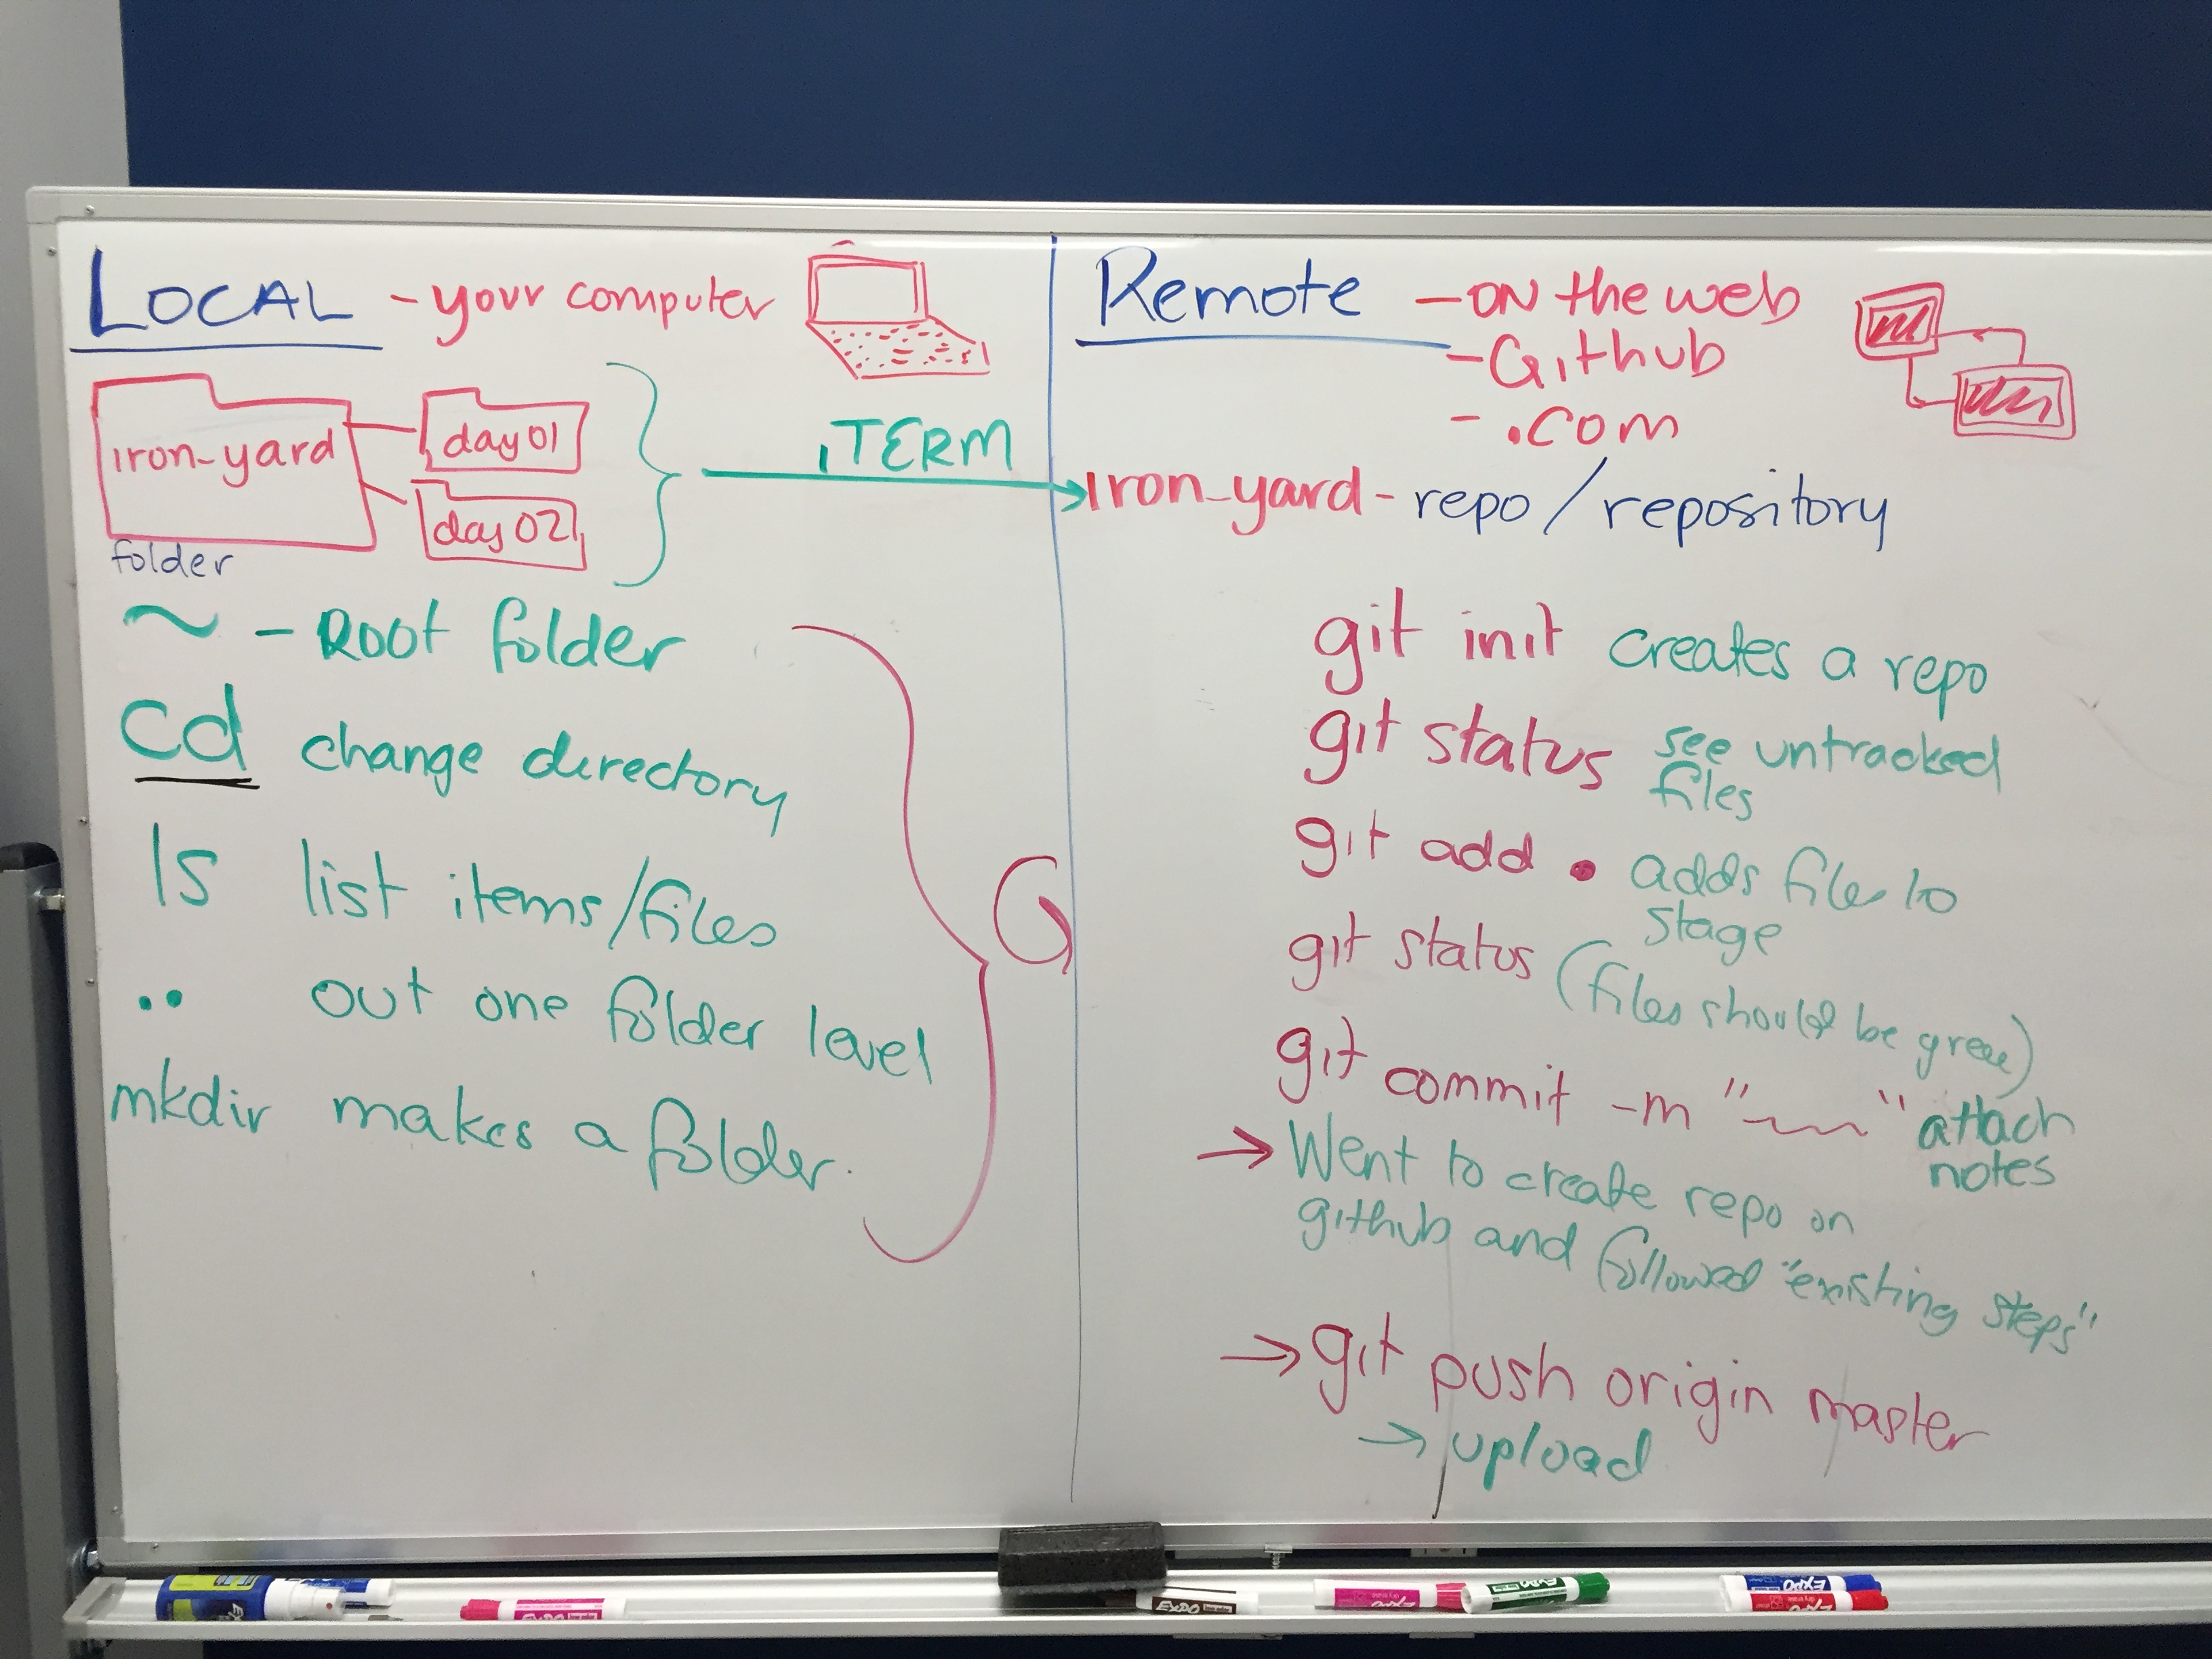 LOCAL - your computer
iron-yard
day01
day02
folder
iTERM
~ - Root folder
cd change directory
ls list items/files
.. out one folder level
mkdir makes a folder.
Remote - ON the web
- Github
- .com
iron-yard - repo / repository
git init creates a repo
git status see untracked
files
git add . adds files to
stage
git status (files should be green)
git commit -m "~~~" attach
notes
→ Went to create repo on
github and followed "existing steps"
→ git push origin master
→ upload
EXPO
EXPO
EXPO
EXPO
EXPO
EXPO